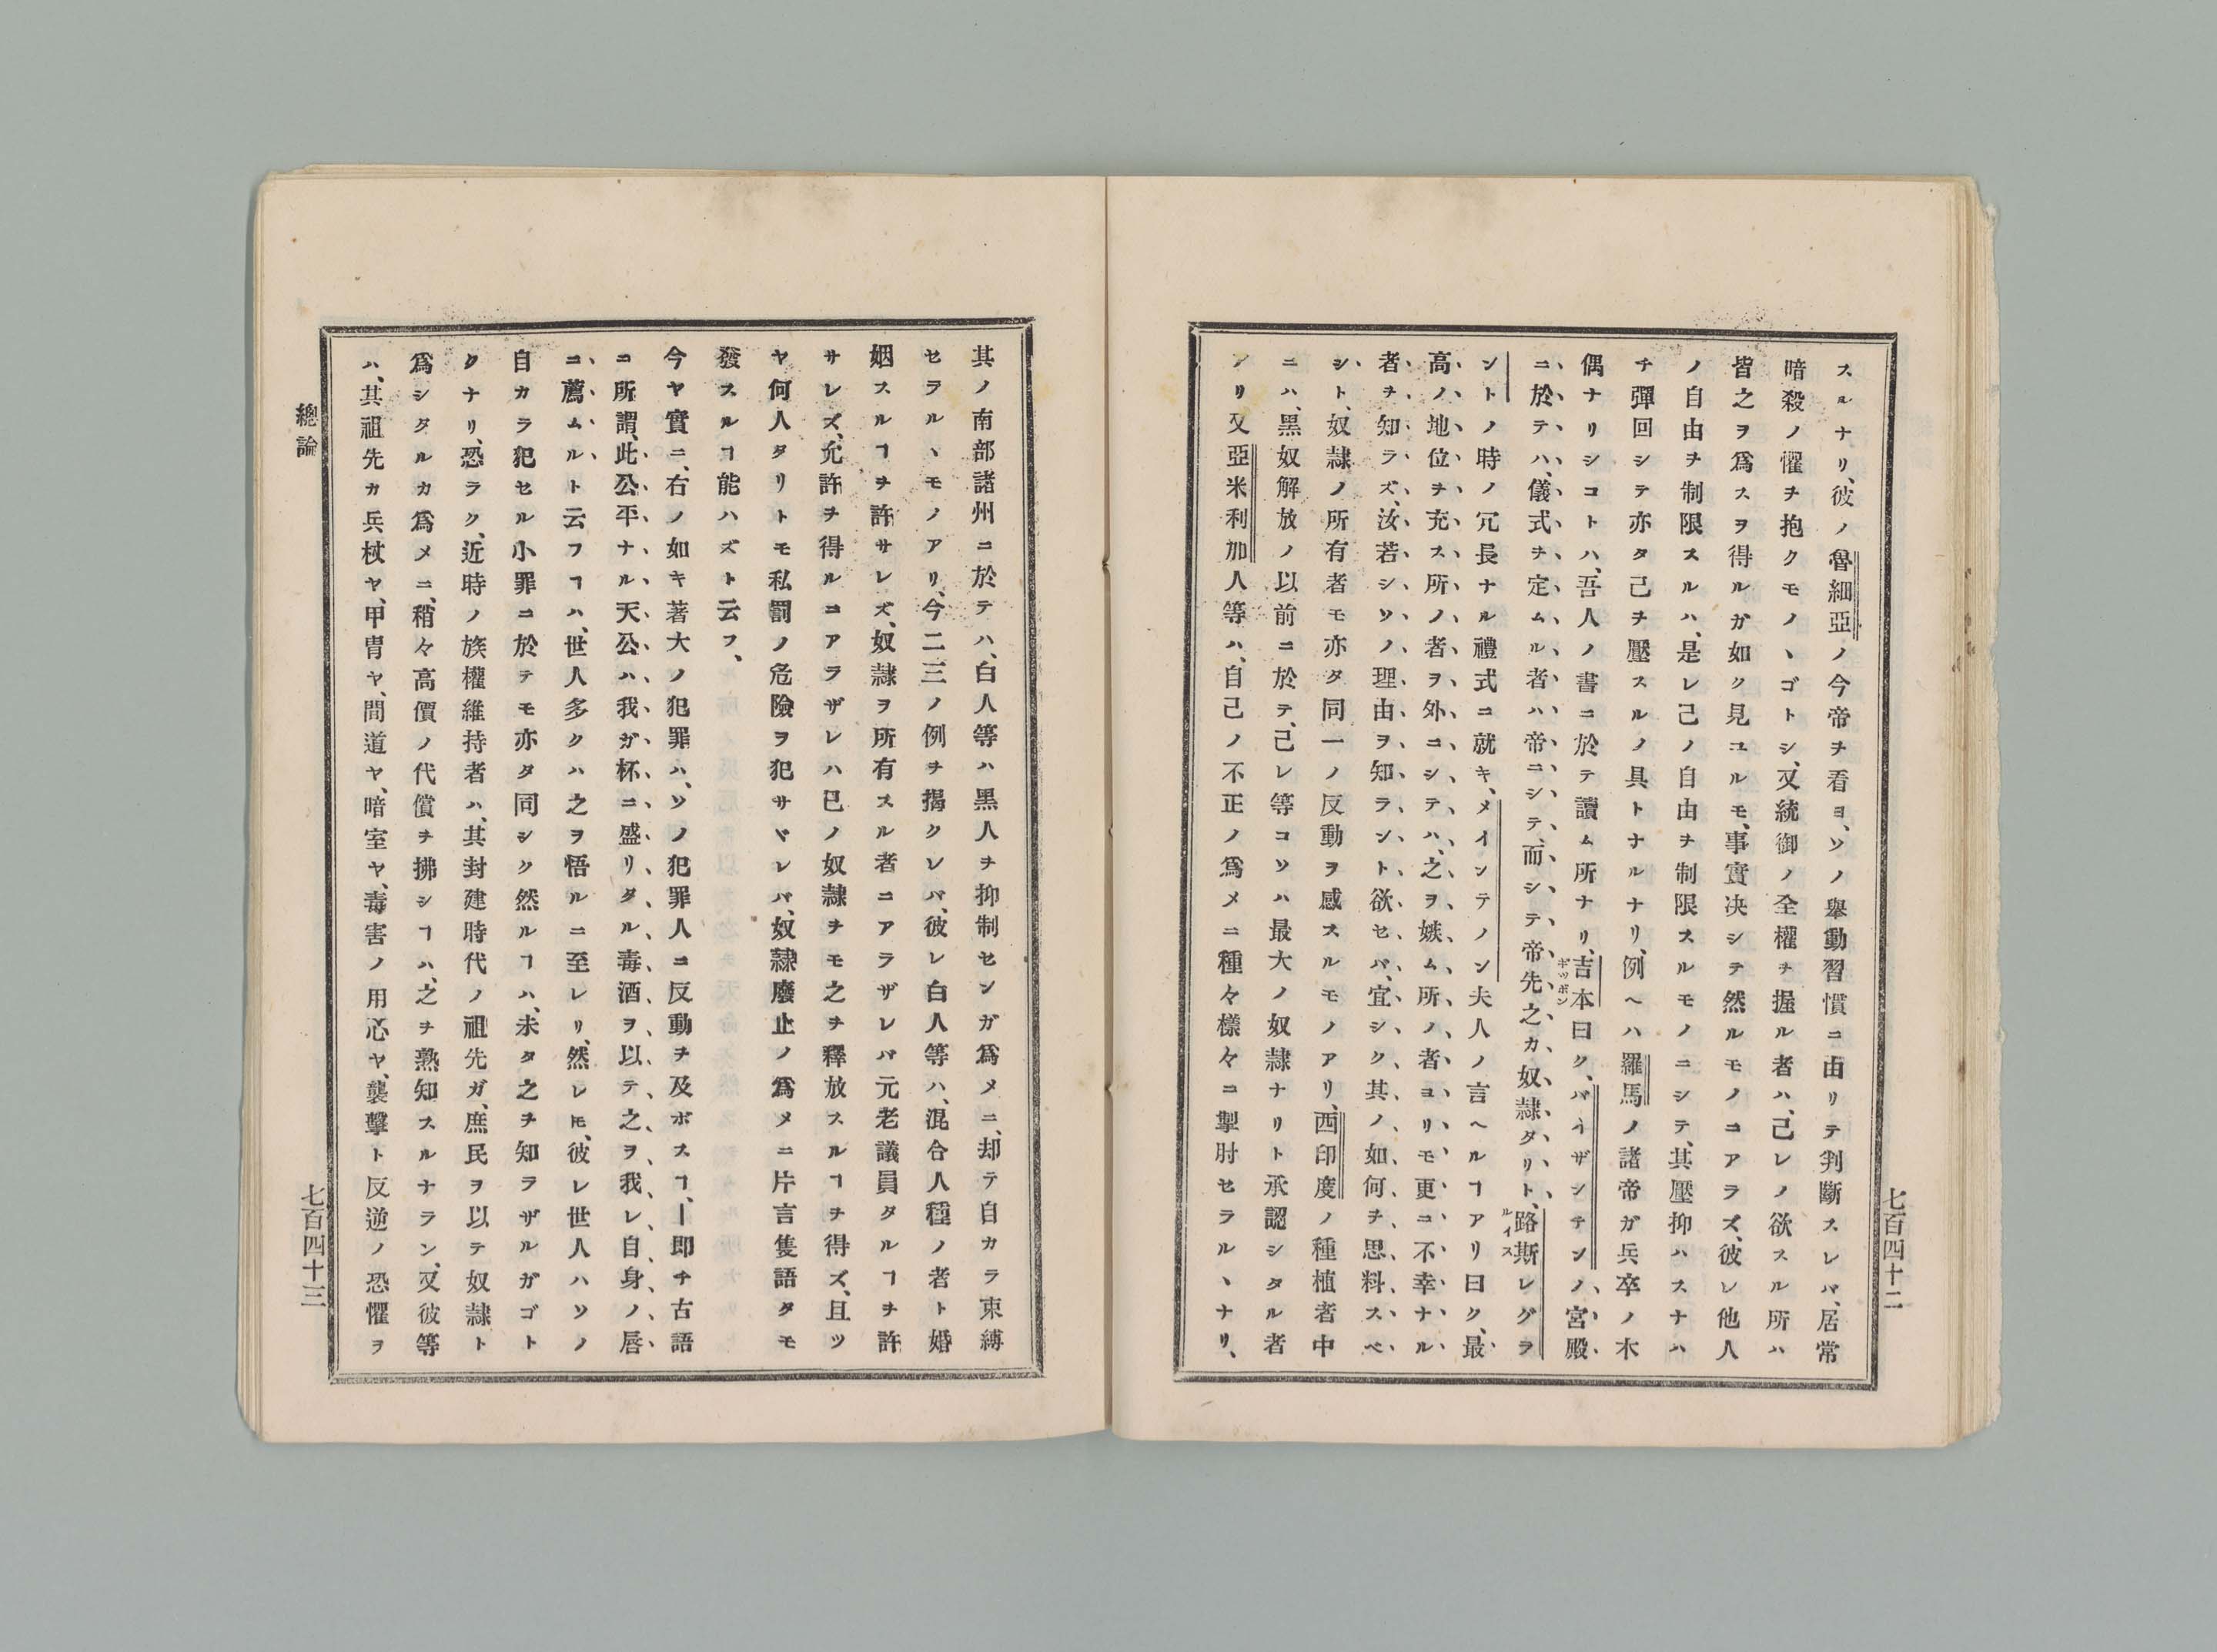 スルナリ、彼ノ魯細亞ノ今帝ヲ看ヨ、ソノ擧動習慣ニ由リテ判斷スレバ、居常
暗殺ノ懼ヲ抱クモノヽゴトシ、又統御ノ全權ヲ握ル者ハ、己レノ欲スル所ハ
皆之ヲ爲スヲ得ルガ如ク見ユルモ、事實决シテ然ルモノニアラズ、彼レ他人
ノ自由ヲ制限スルハ、是レ己ノ自由ヲ制限スルモノニシテ、其壓抑ハスナハ
チ彈回シテ亦タ己ヲ壓スルノ具トナルナリ、例ヘハ羅馬ノ諸帝ガ兵卒ノ木
偶ナリシコトハ、吾人ノ書ニ於テ讀ム所ナリ、吉本曰ク、バイザンテンノ宮殿
ギッボン
ニ於テハ、儀式ヲ定ムル者ハ帝ニシテ、而シテ帝先之カ奴隷タリト、路斯レグラ
ルイス
ントノ時ノ冗長ナル禮式ニ就キ、メインテノン夫人ノ言ヘルヿアリ曰ク、最
高ノ地位ヲ充ス所ノ者ヲ外ニシテハ、之ヲ嫉ム所ノ者ヨリモ更ニ不幸ナル
者ヲ知ラズ、汝若シソノ理由ヲ知ラント欲セバ、宜シク其ノ如何ヲ思料スベ
シト、奴隷ノ所有者モ亦タ同一ノ反動ヲ感スルモノアリ、西印度ノ種植者中
ニハ、黑奴解放ノ以前ニ於テ、己レ等コソハ最大ノ奴隷ナリト承認シタル者
アリ又亞米利加人等ハ、自己ノ不正ノ爲メニ種々樣々ニ掣肘セラルヽナリ、
七百四十二
其ノ南部諸州ニ於テハ、白人等ハ黑人ヲ抑制センガ爲メニ、却テ自カラ束縛
セラルヽモノアリ、今二三ノ例ヲ揭クレバ、彼レ白人等ハ、混合人種ノ者ト婚
姻スルヿヲ許サレズ、奴隷ヲ所有スル者ニアラザレバ元老議員タルヿヲ許
サレズ、允許ヲ得ルニアラザレハ已ノ奴隷ヲモ之ヲ釋放スルヿヲ得ズ、且ツ
ヤ何人タリトモ私罰ノ危險ヲ犯サヾレバ、奴隷廢止ノ爲メニ片言隻語タモ
發スルヿ能ハズト云フ、
今ヤ實ニ、右ノ如キ著大ノ犯罪ハ、ソノ犯罪人ニ反動ヲ及ボスヿ、ー即チ古語
ニ所謂、此公平ナル天公ハ我ガ杯ニ盛リタル毒酒ヲ以テ之ヲ我レ自身ノ唇
ニ薦ムルト云フヿハ、世人多クハ之ヲ悟ルニ至レリ、然レㇳ゙モ、彼レ世人ハソノ
自カラ犯セル小罪ニ於テモ亦タ同シク然ルヿハ、未タ之ヲ知ラザルガゴト
クナリ、恐ラク、近時ノ族權維持者ハ、其封建時代ノ祖先ガ、庶民ヲ以テ奴隷ト
爲シタルカ爲メニ、稍々高價ノ代償ヲ拂シヿハ、之ヲ熟知スルナラン、又彼等
ハ、其祖先カ兵杖ヤ、甲冑ヤ、間道ヤ、暗室ヤ、毒害ノ用心ヤ、襲擊ト反逆ノ恐懼ヲ
總論
七百四十三